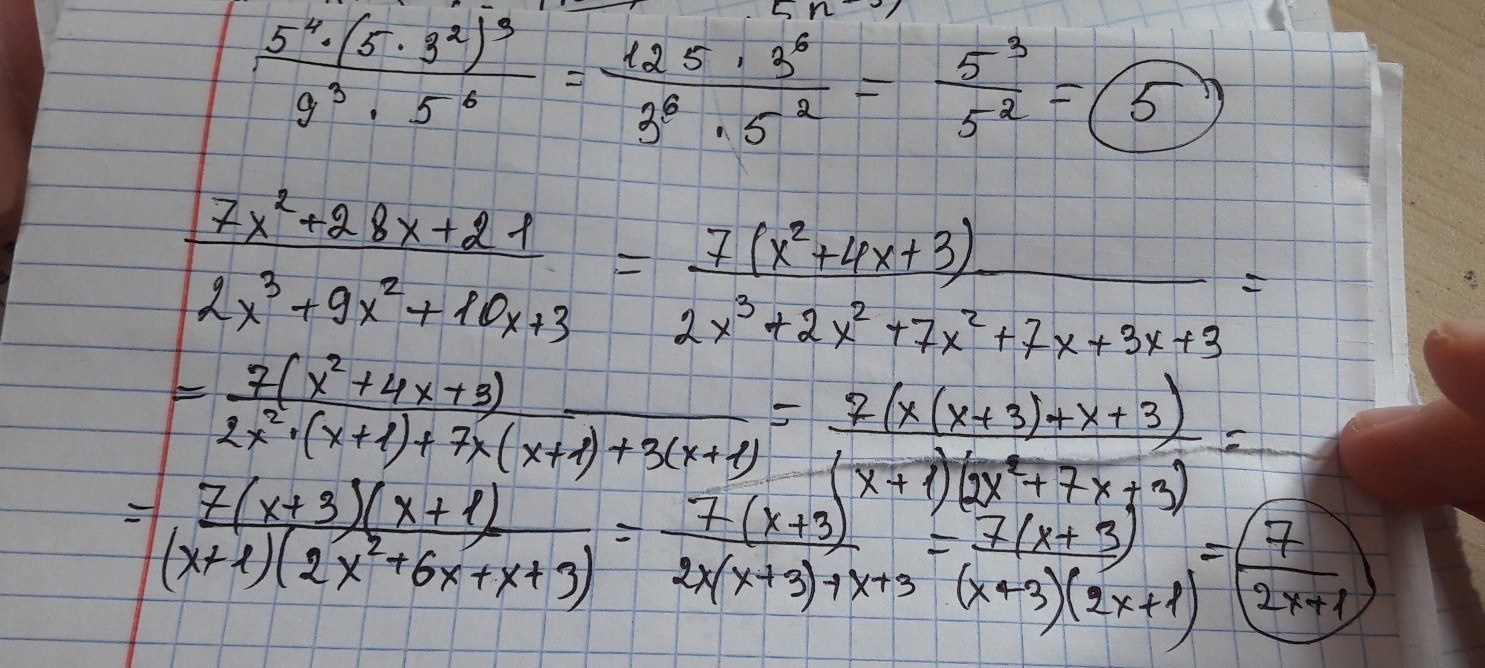 5 n
5⁴·(5·3²)³ / 9³·5⁶ = 125·3⁶ / 3⁶·5² = 5³ / 5² = 5
7x²+28x+21 / 2x³+9x²+10x+3 = 7(x²+4x+3) / 2x³+2x²+7x²+7x+3x+3 =
= 7(x²+4x+3) / 2x²·(x+1)+7x(x+1)+3(x+1) = 7(x(x+3)+x+3) / (x+1)(2x²+7x+3) =
= 7(x+3)(x+1) / (x+1)(2x²+6x+x+3) = 7(x+3) / 2x(x+3)+x+3 = 7(x+3) / (x+3)(2x+1) = 7 / 2x+1